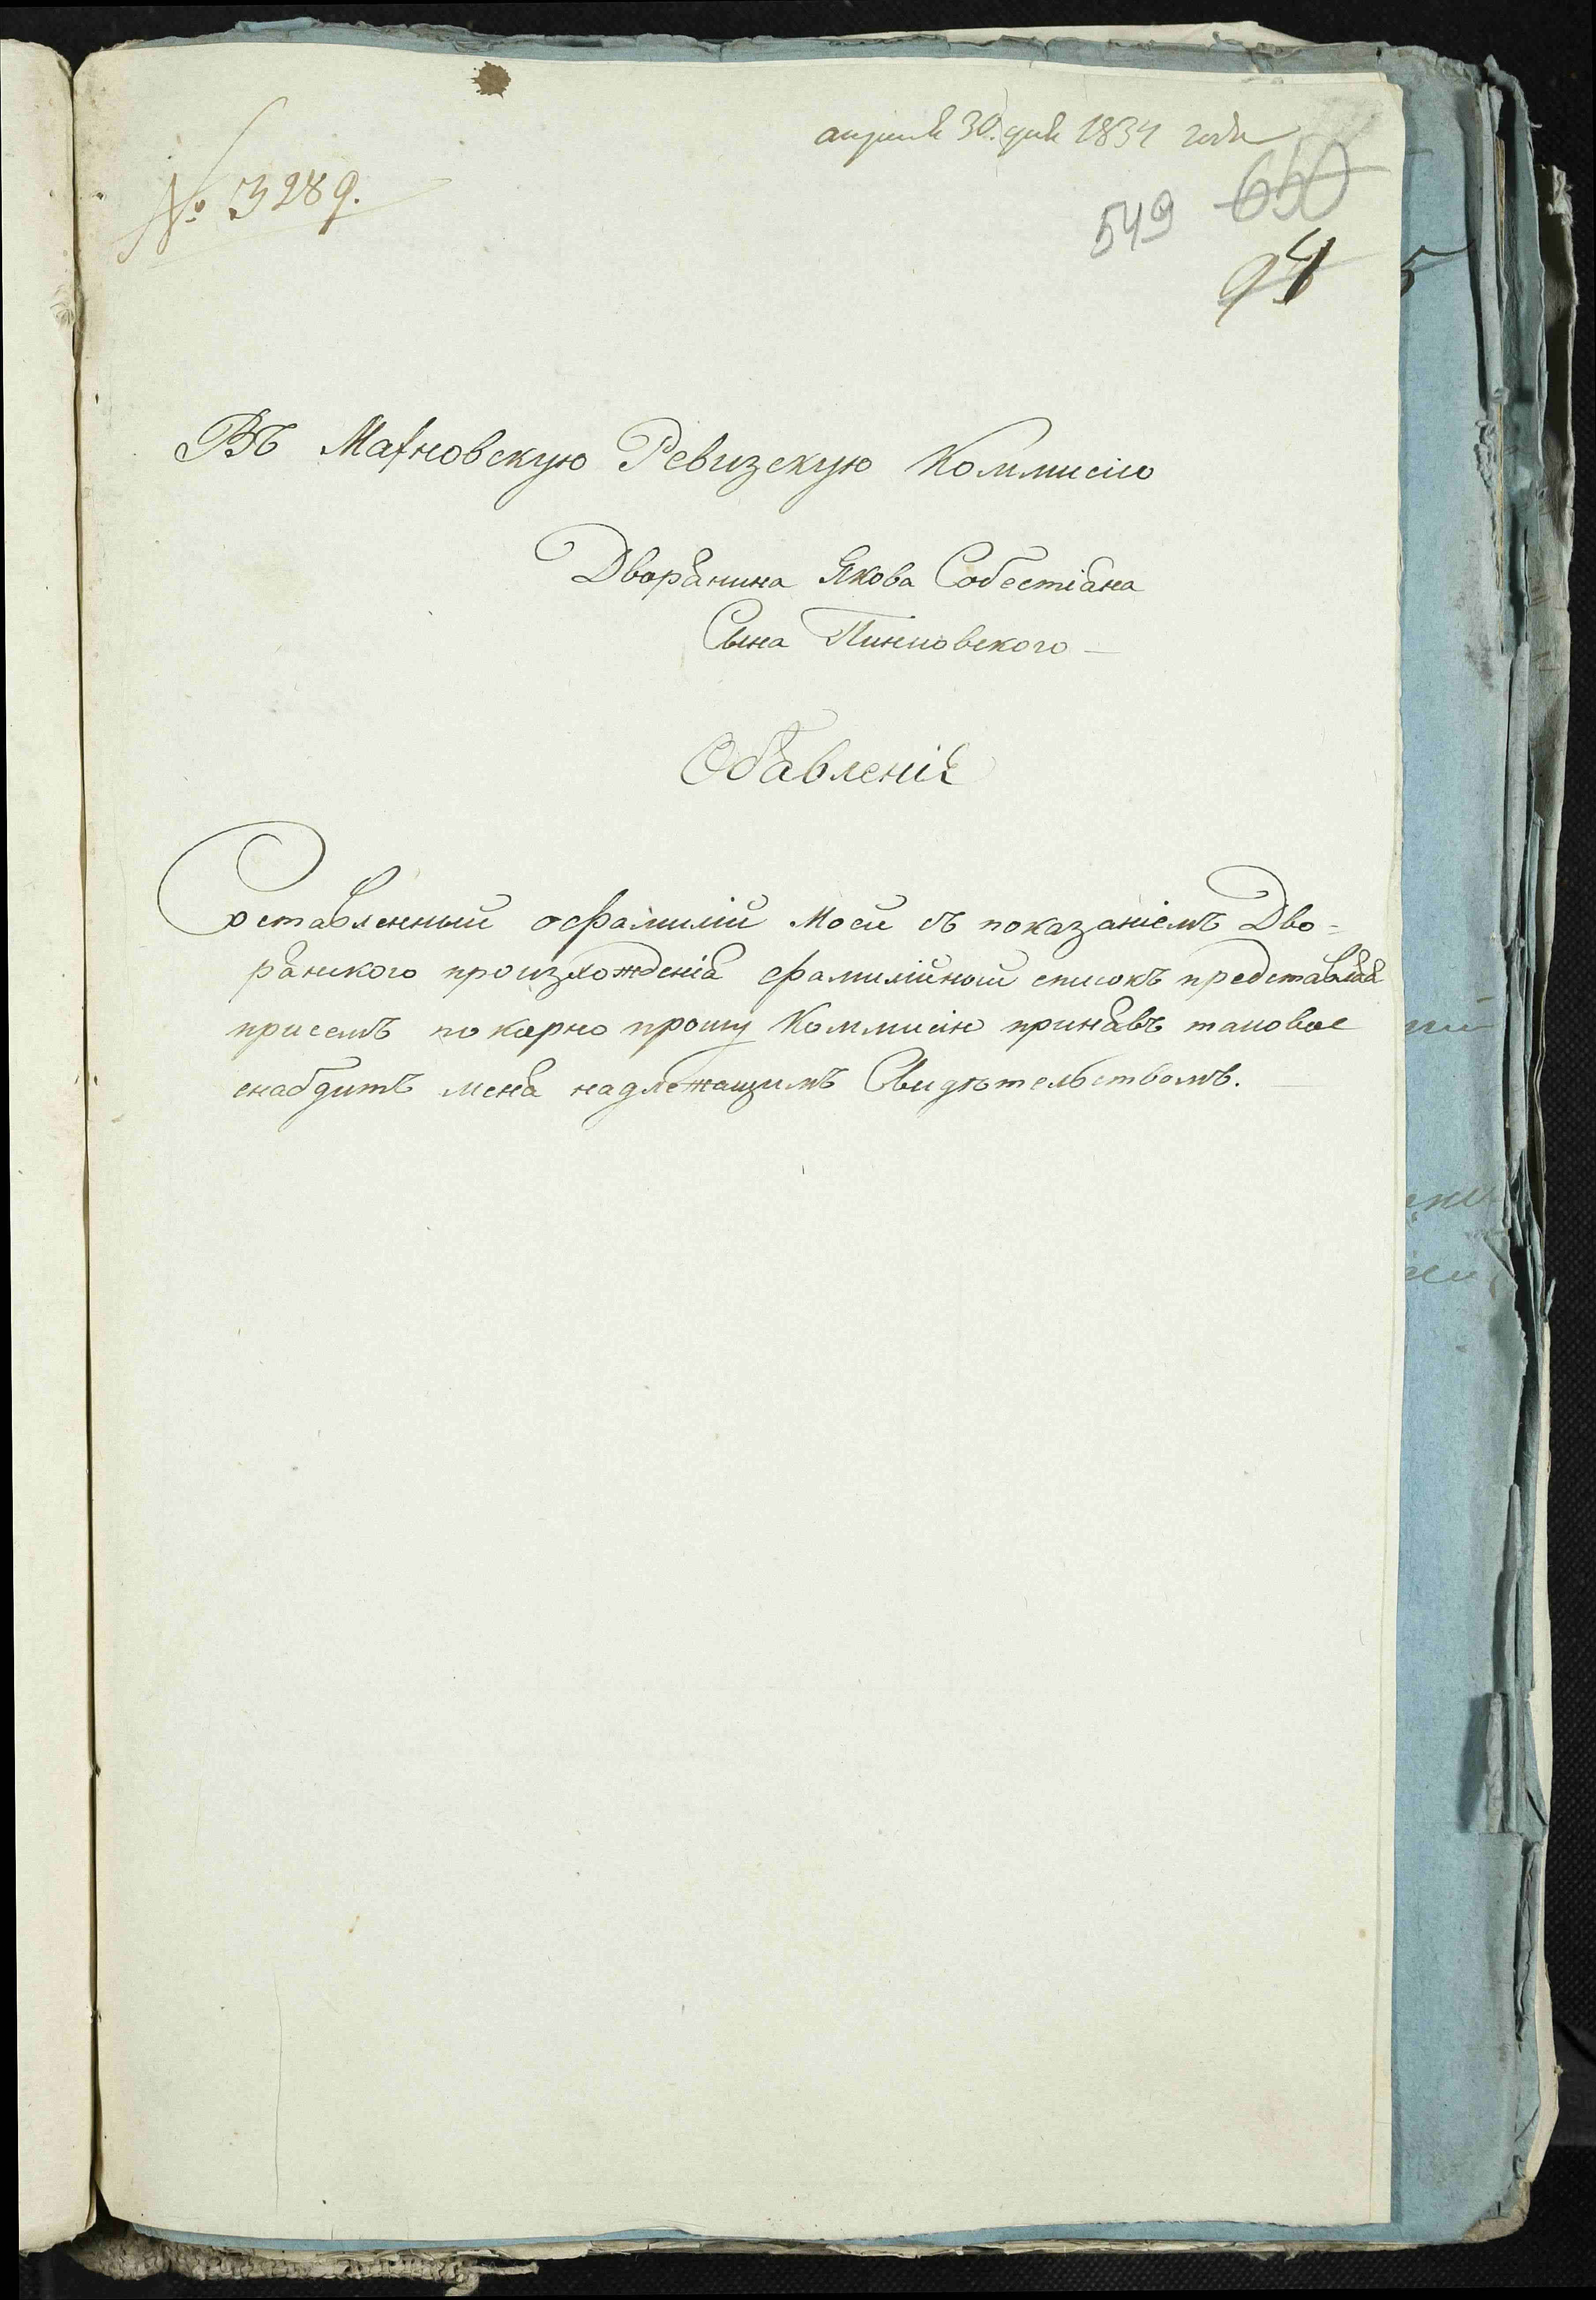 апреля 30. дня 1834 года
№ 3289.
650
549
94
Въ Махновскую Ревизскую Коммисію
Дворянина Якова Собестіяна
Сына
Обявленія
Составленный офамиліи моей съ показаніемъ Дво=
рянского произхожденія фамилійный списокъ представляя
присемъ покорно прошу Коммисію принявъ таковые
снабдитъ меня надлежащимъ Свидѣтельствомъ.